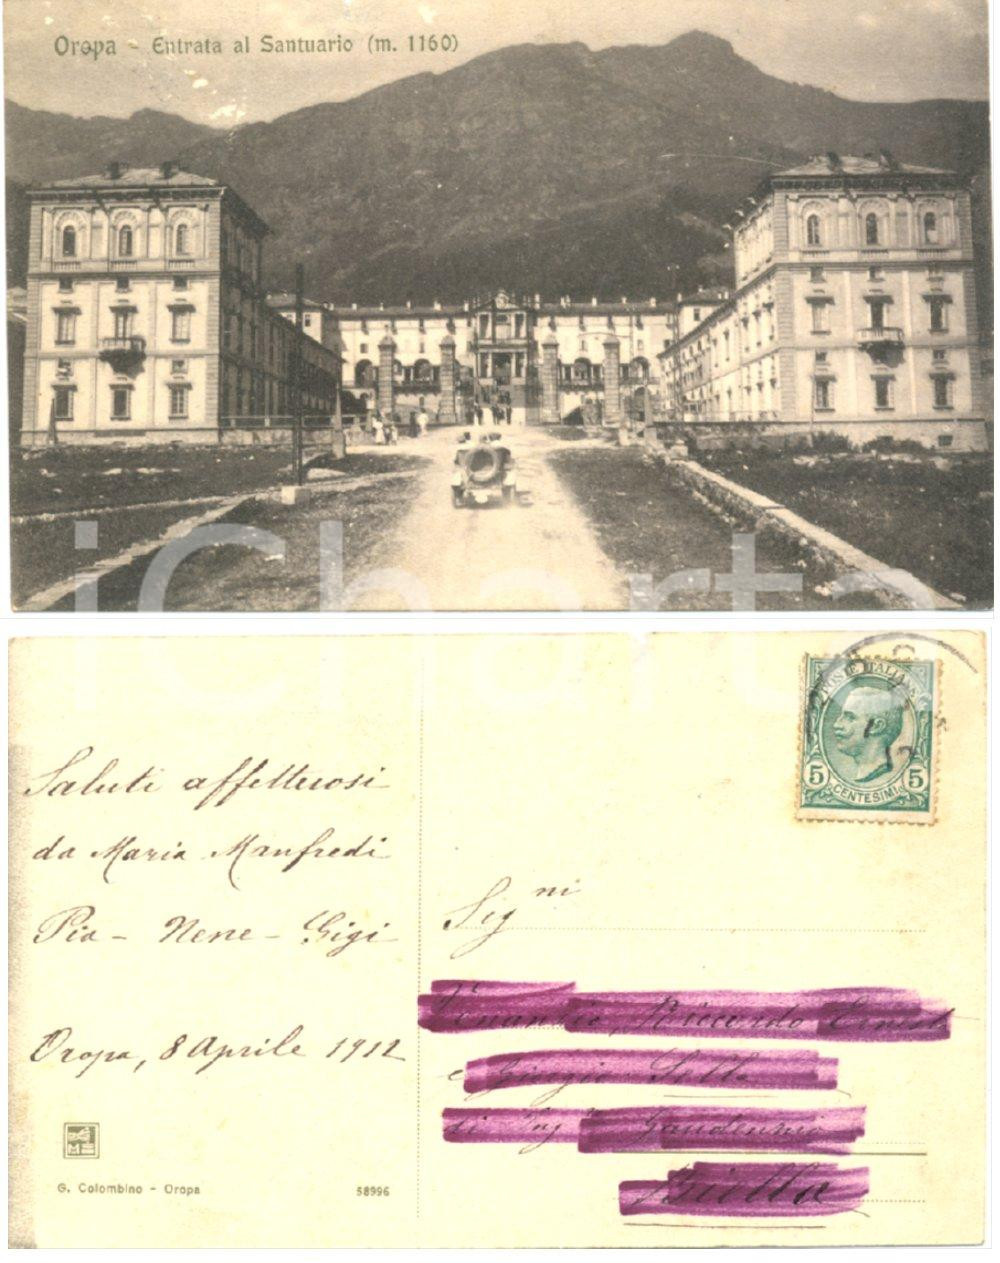 Oropa - Entrata al Santuario (m. 1160)
iCharta
POSTE ITALIANE
5 5
CENTESIMI
Saluti affettuosi
da Maria Manfredi
Pia - Nene - Gigi
Oropa, 8 Aprile 1912
Sig ni
G. Colombino - Oropa
58996